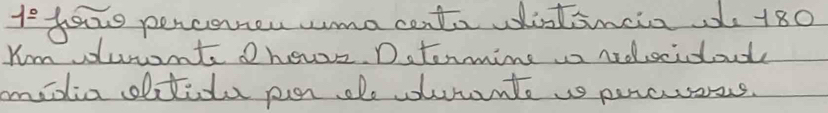 1º João percorreu uma certa distância de 180
Km durante 2 horas. Determine a velocidade
média obtida por ele durante o percurso.